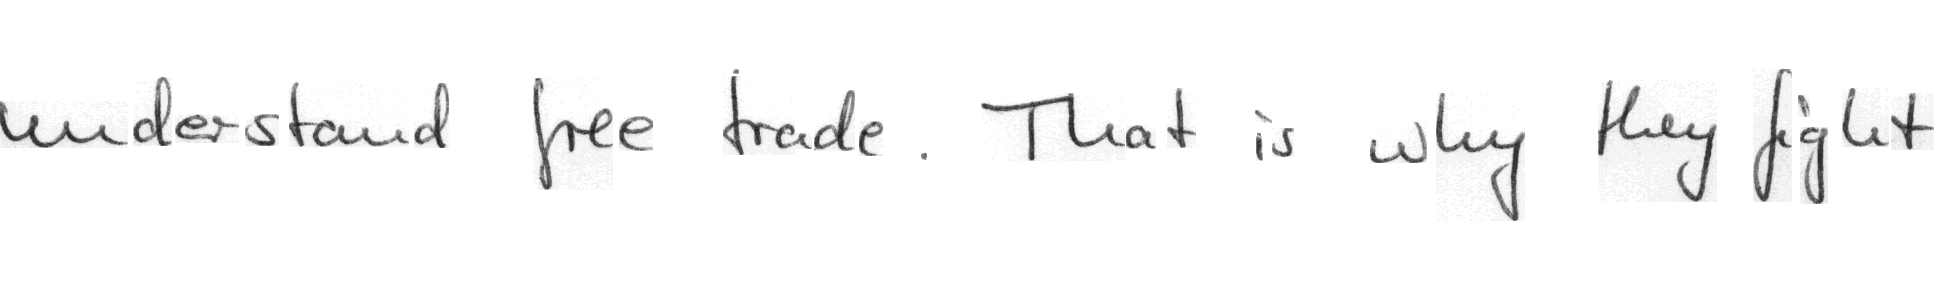 understand free trade. That is why they fight